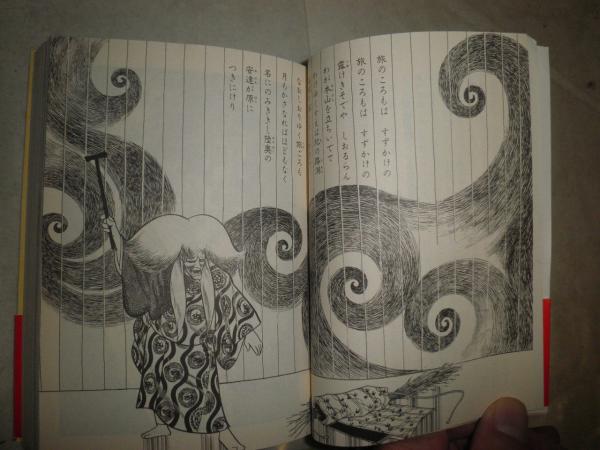 旅のころもは　すずかけの
旅のころもは　すずかけの
露けきそでや　しおるらん
わが本山を立ちいでて
なおしおりゆく旅ごろも
月もかさなればほどもなく
名にのみききし陸奥の
安達が原に
つきにけり